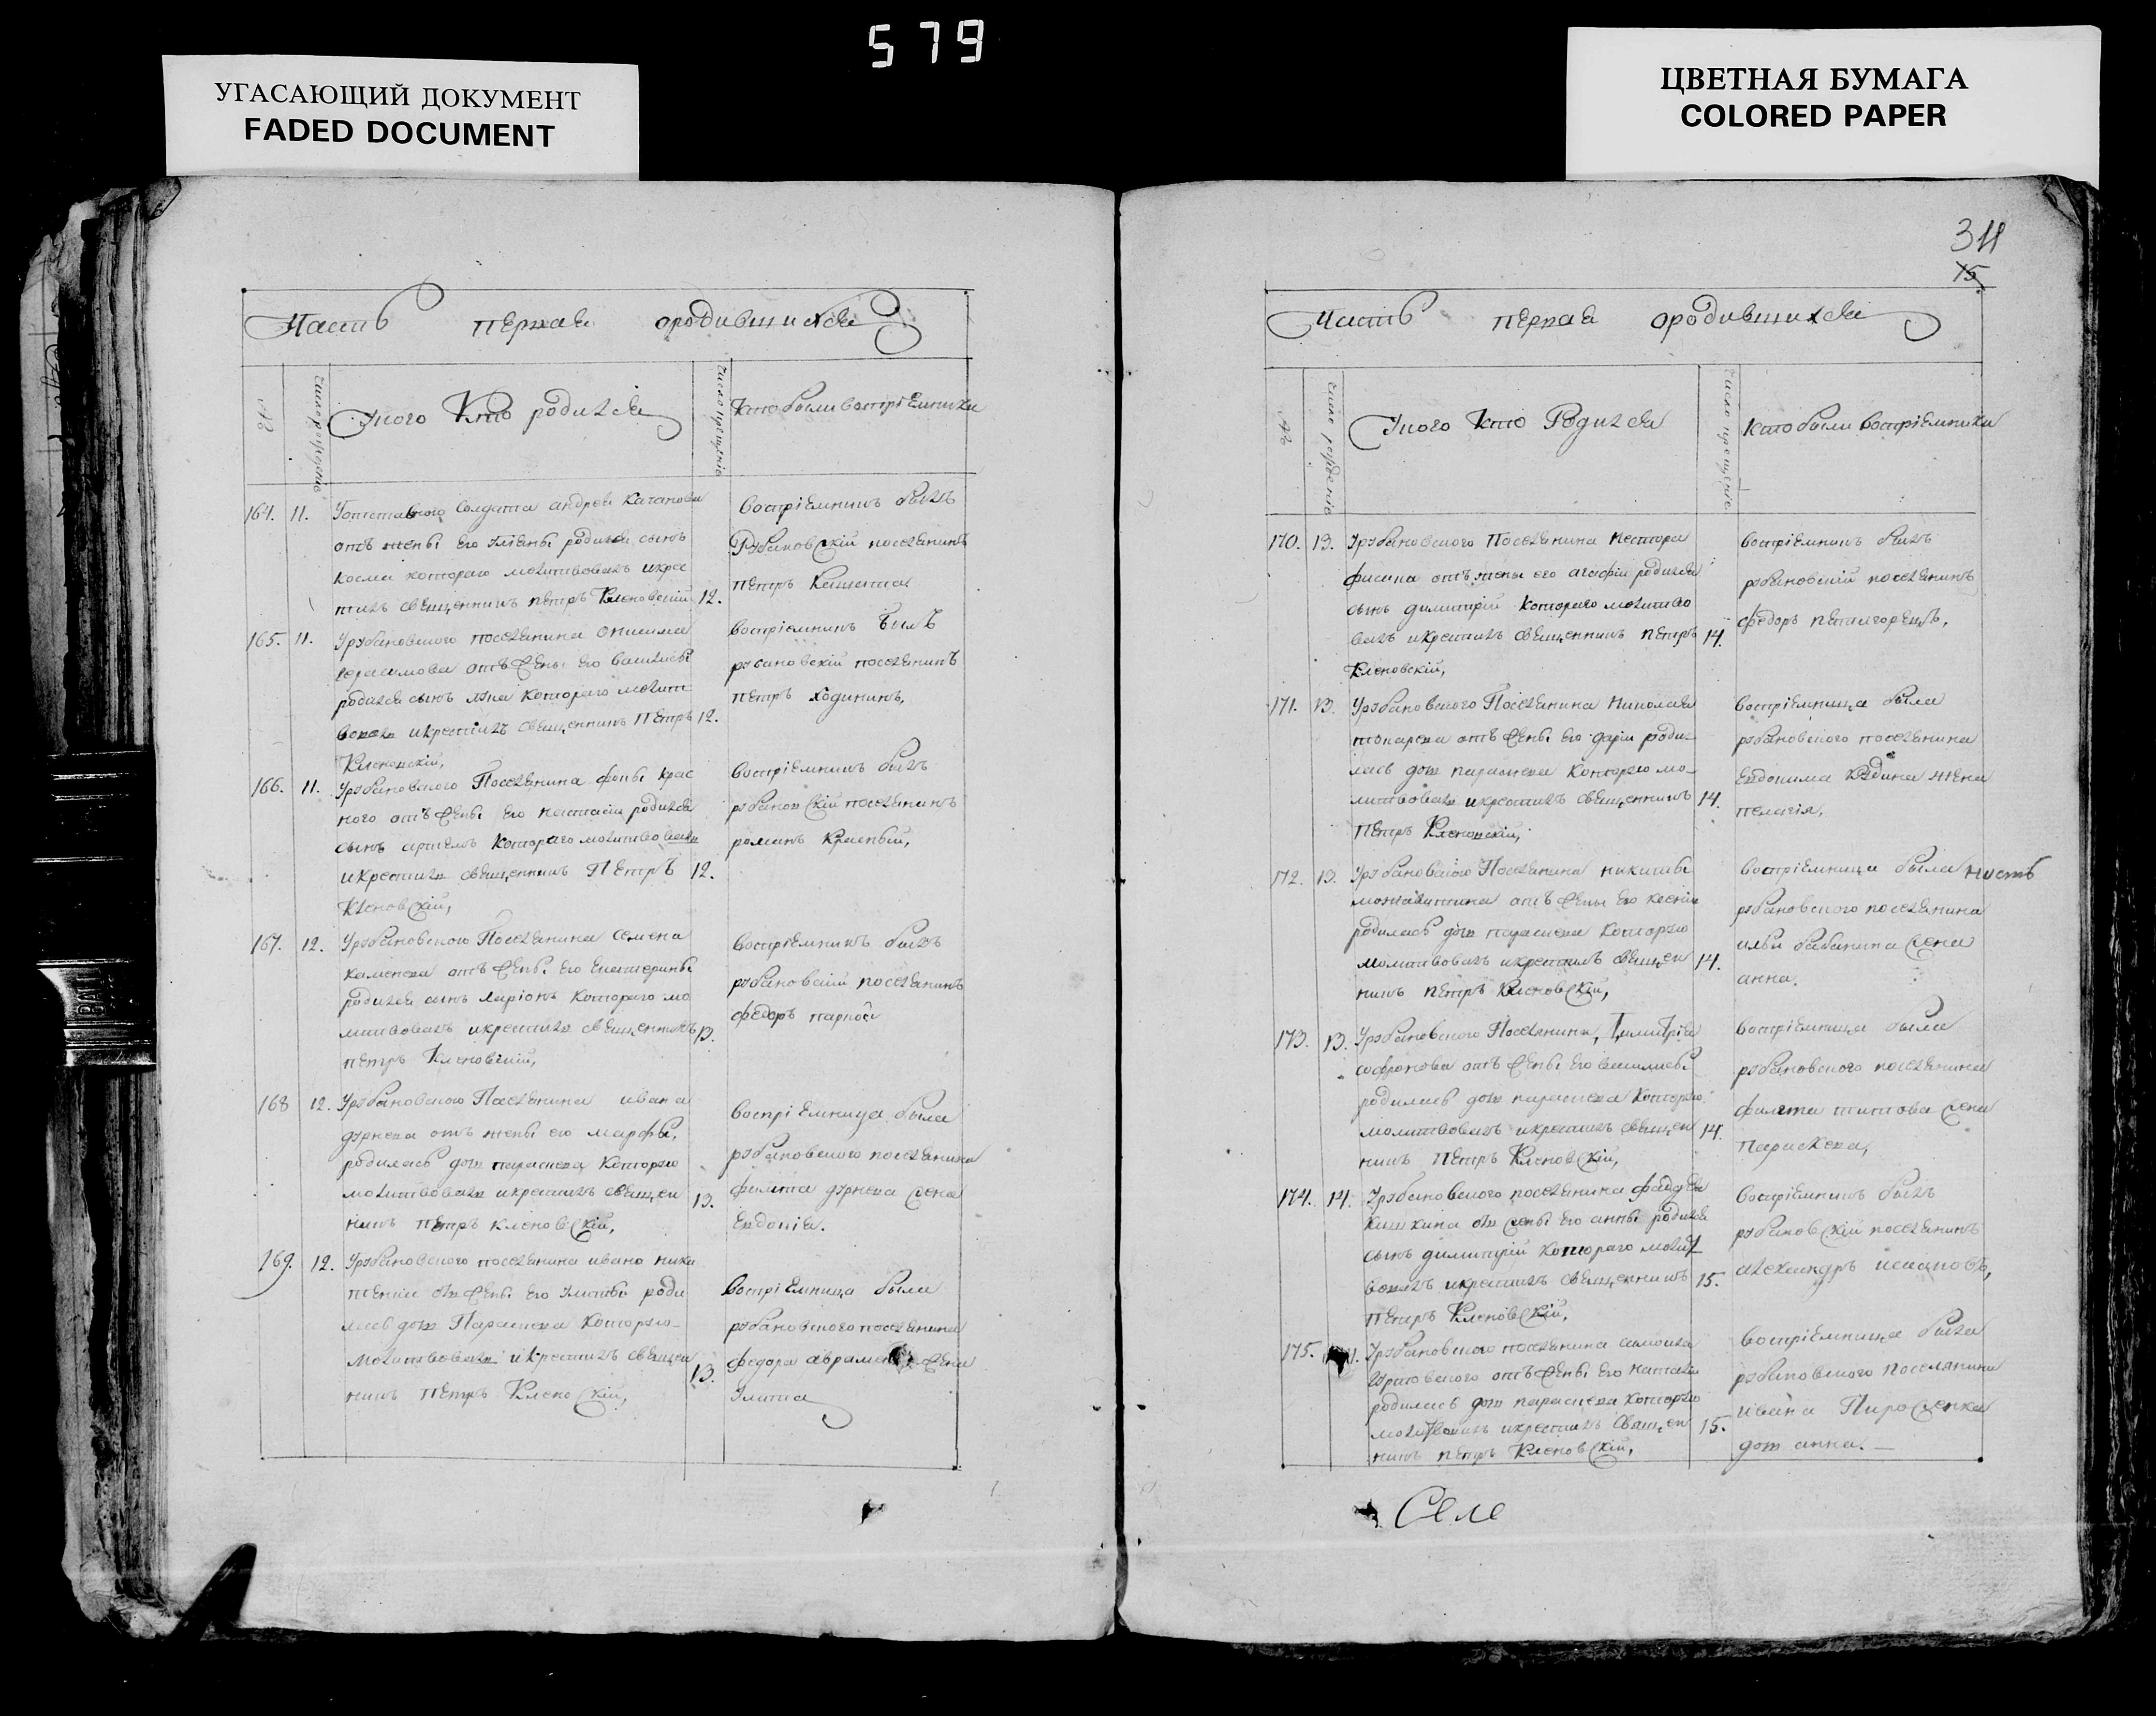 579
УГАСАЮЩИЙ ДОКУМЕНТ
FADED DOCUMENT
ЦВЕТНАЯ БУМАГА
COLORED PAPER
Часть первая ородившихся
№
число рождения
Укого Кто родился
число крещения
кто были воспріемники
164. 11. Уотставного солдата андрея
отъ жены его родился сынъ
косма котораго молитвовалъ икрес
тилъ священникъ петръ Кленовский 12.
воспріемникъ былъ
Рубановскій поселянинъ
петръ
165. 11. Урубановского поселянина онисима
герасимова отъ жены его василисы
родился сынъ котораго молит
вовалъ икрестилъ священникъ Петръ 12.
Кленовскій,
воспріемникъ былъ
рубановскій поселянинъ
петръ ходининъ,
166. 11. Урубановского Поселянина фомы крас
ного отъ жены его настасіи родился
сынъ артемъ котораго молитвовалъ
икрестилъ священникъ Петръ 12.
Кленовскій,
воспріемникъ былъ
рубановскій поселянинъ
романъ Красный,
167. 12. Урубановского Поселянина семена
каменева отъ жены его екатерины
родился сынъ ларіонъ котораго мо
литвовалъ икрестилъ священникъ 13.
петръ Кленовскій,
воспріемникъ былъ
рубановскій поселянинъ
федоръ
168 12. Урубановского Поселянина ивана
дурнева отъ жены его марфы,
родилась дочь параскева которую
молитвовалъ икрестилъ священ 13.
никъ петръ кленовскій,
воспріемница была
рубановского поселянина
филипа дурнева жена
евдокія.
169. 12. Урубановского поселянина ивана ники
тенка отъ жены его улиты роди
лась дочь Параскева которую
молитвовалъ икрестилъ священ 13.
никъ петръ Кленовскій,
воспріемница была
рубановского поселянина
федора авраменка жена
улита
311
15
Часть первая ородившихся
№
число рожденіе
Укого кто Родился
число крещеніе
кто были воспріемники
170. 13. Урубановского Поселянина нестора
фисина отъ жены его агафіи родился
сынъ димитрій котораго молитво
валъ икрестилъ священникъ петръ 14.
Кленовскій,
воспріемникъ былъ
рубановскій поселянинъ
федоръ петигорецъ,
171. 13. Урубановского Поселянина николая
токарева отъ жены его даріи роди-
лась дочь параскева которую мо-
литвовалъ икрестилъ священникъ 14.
петръ Кленовскій,
воспріемница была
рубановского поселянина
евдокима кудина жена
пелагія,
172. 13. Урубановского Поселянина никиты
отъ жены его ксеніи
родилась дочь параскева которую
молитвовалъ икрестилъ священ 14.
никъ петръ Кленовскій,
воспріемница была
рубановского поселянина
ильи бабанина жена
анна.
173. 13. Урубановского Поселянина, Димитрія
софронова отъ жены его василисы
родилась дочь параскева которую
молитвовалъ икрестилъ священ 14.
никъ петръ Кленовскій,
воспріемница была
рубановского поселянина
филипа титова жена
параскева,
174. 14. Урубановского поселянина фадея
кишкина отъ жены его анны родился
сынъ димитрій котораго молит
вовалъ икрестилъ священникъ 15.
петръ Кленовскій,
воспріемникъ былъ
рубановскій поселянинъ
александръ
175. Урубановского поселянина самойла
отъ жены его наталіи
родилась дочь параскева которую
молитвовалъ икрестилъ священ 15.
никъ петръ Кленовскій,
воспріемница была
рубановского поселянина
ивана Пироженка
дочь анна.
Селе